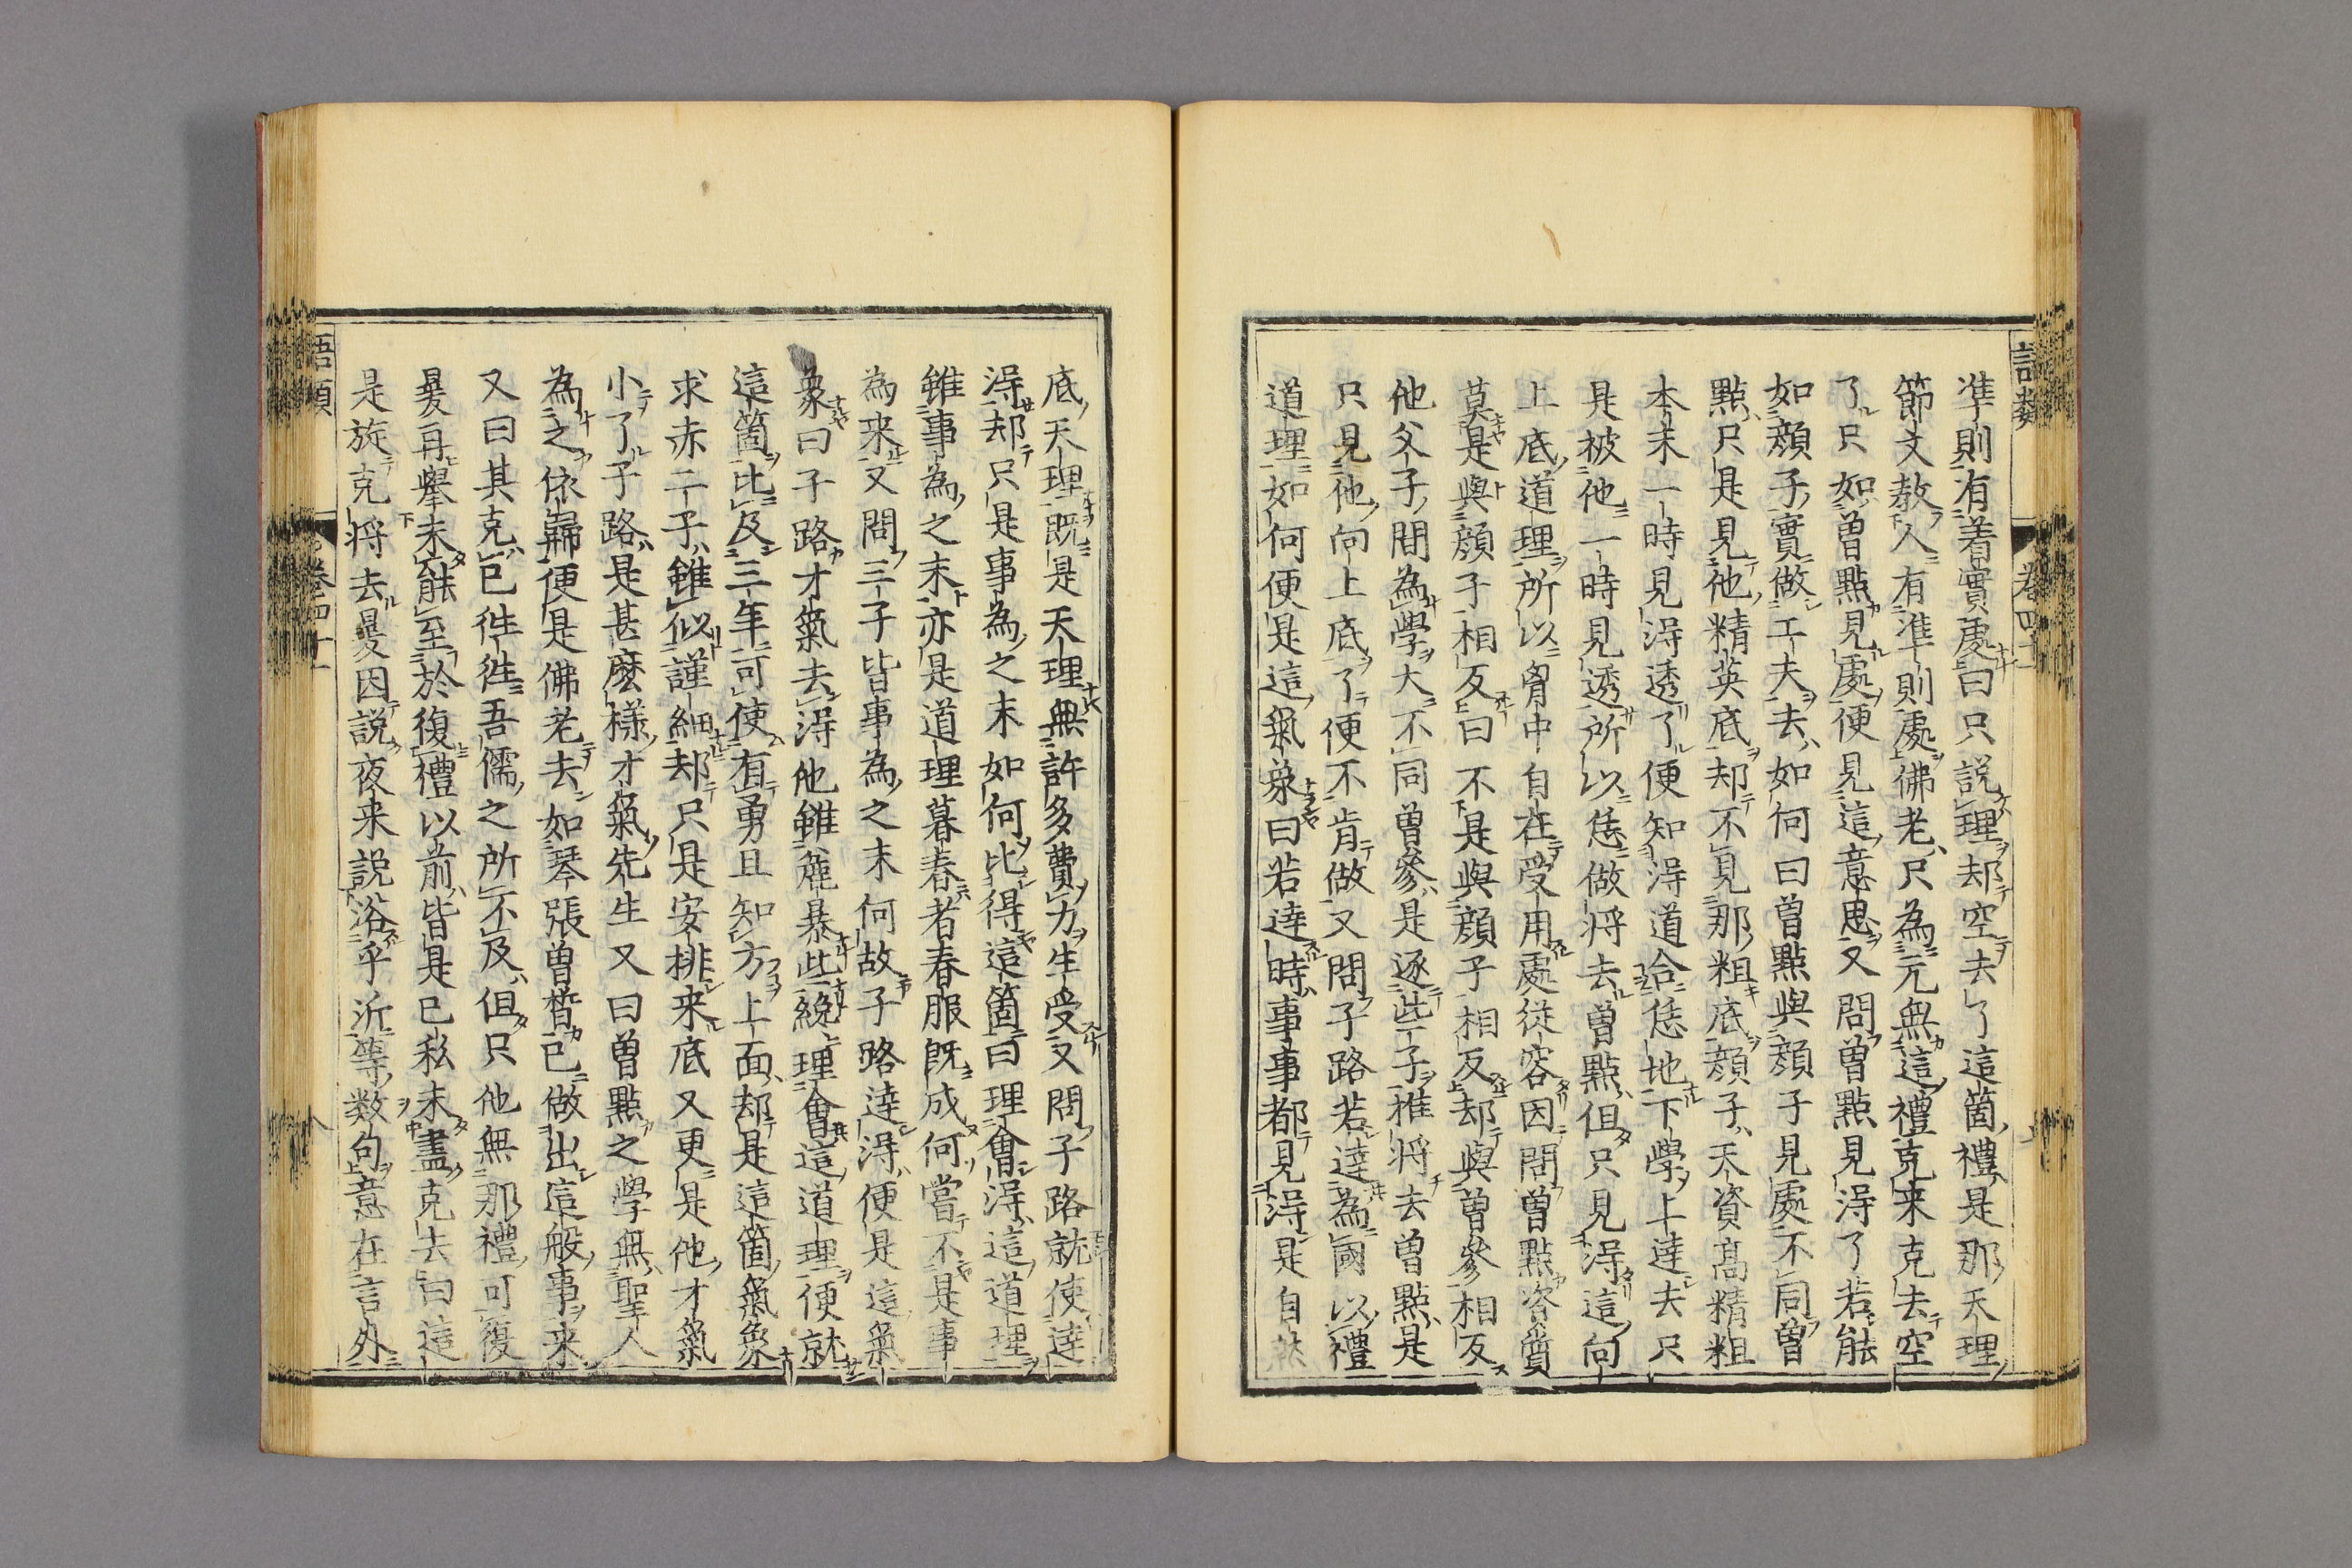 語類　卷四十一
準則有着實處曰只說理却空去了這箇禮是那天理
節文教人有準則處佛老只為元無這禮克來克去空
了只如曾點見處便見這意思又問曾點見得了若能
如顏子實做工夫去如何曰曾點與顏子見處不同曾
點只是見他精英底却不見那粗底顏子天資高精粗
本末一時見得透了便知得道合恁地下學上達去只
是被他一時見透所以恁做將去曾點但只見得這向
上底道理所以胷中自在受用處從容因問曾點資質
莫是與顏子相反曰不是與顏子相反却與曾參相反
他父子間為學大不同曾參是逐些子推將去曾點是
只見他向上底了便不肯做又問子路若達為國以禮
道理如何便是這氣象曰若達時事事都見得是自然
底天理既是天理無許多費力生受又問子路就使達
得却只是事為之末如何比得這箇曰理會得這道理
雖事為之末亦是道理暮春者春服既成何嘗不是事
為来又問三子皆事為之末何故子路達得便是這氣
象曰子路才氣去得他雖麄暴些纔理會這道理便就
這箇比及三年可使有勇且知方上面却是這箇氣象
求赤二子雖似謹細却只是安排来底又更是他才氣
小了子路是甚麼樣才氣先生又曰曾點之學無聖人
為之依歸便是佛老去如琴張曾晳已做出這般事来
又曰其克己往往吾儒之所不及但只他無那禮可復
㬥再舉未能至於復禮以前皆是己私未盡克去曰這
是旋克將去㬥因說夜来說浴乎沂等數句意在言外
語類　卷四十一　八